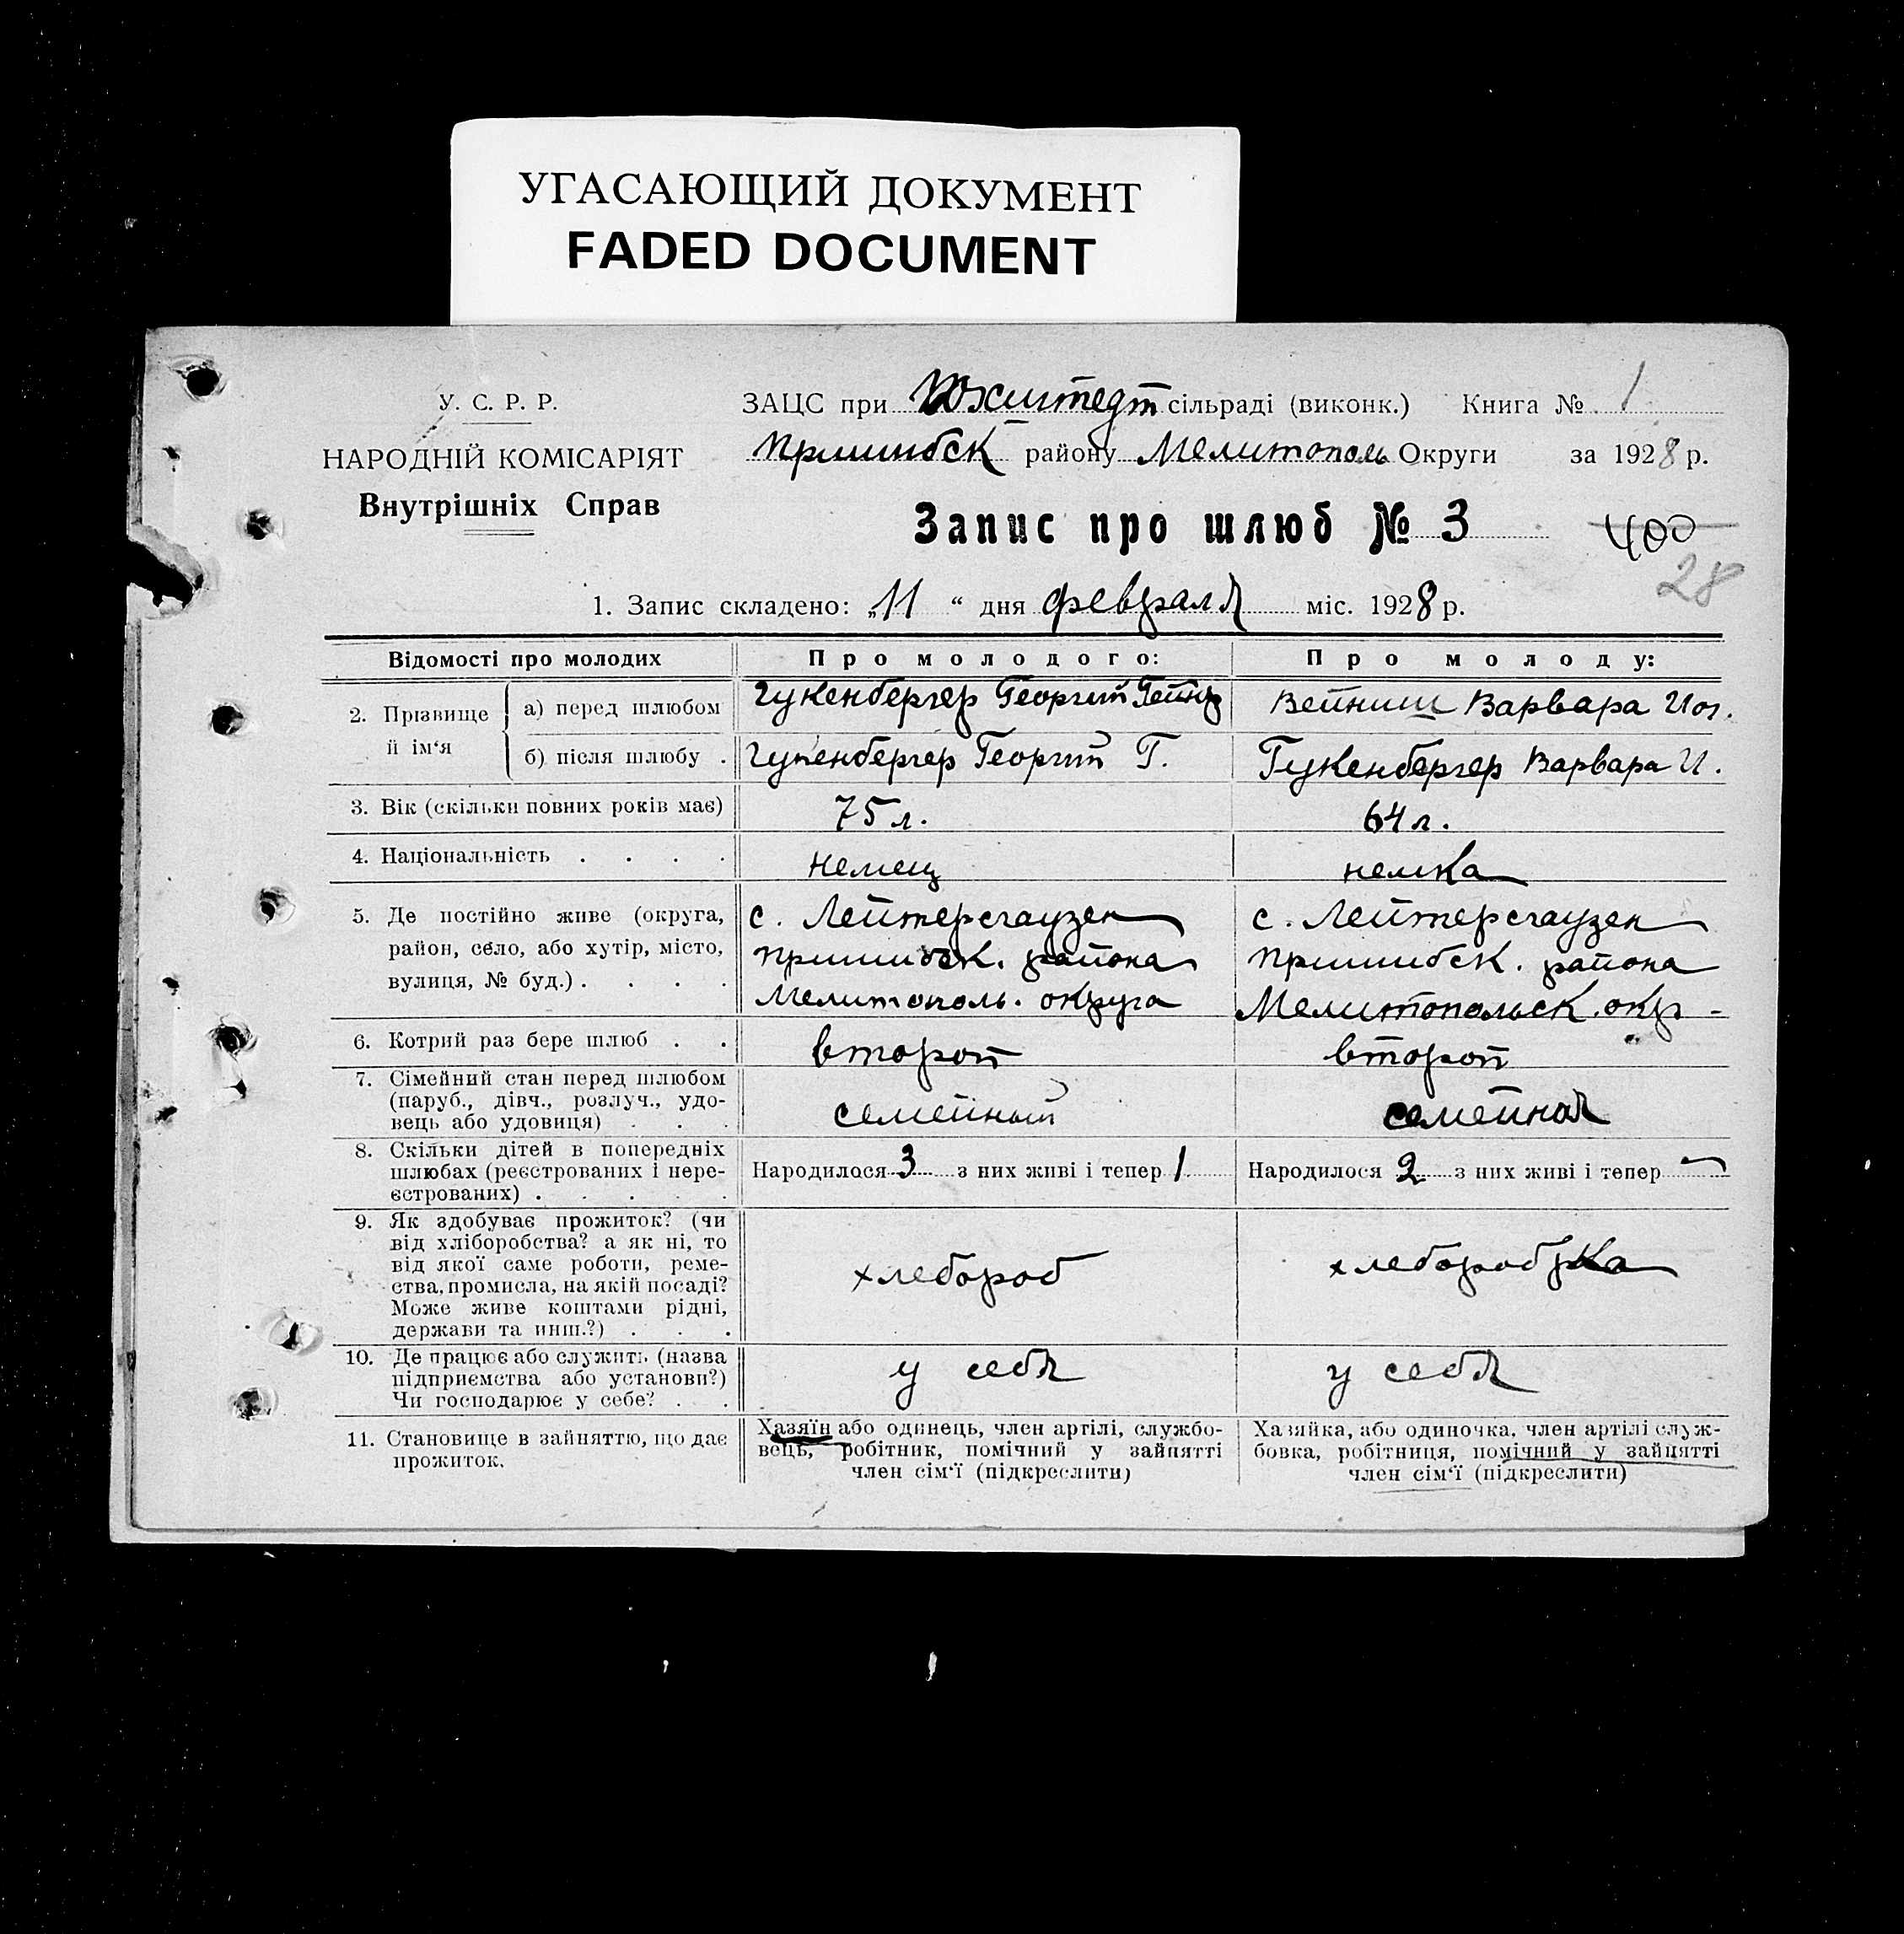 УГАСАЮЩИЙ ДОКУМЕНТ
FADED DOCUMENT
У. С. Р. Р.
НАРОДНІЙ КОМІСАРІЯТ
Внутрішніх Справ
ЗАЦС при сільраді (виконк.) Книга № 1
Пришибск району Мелитополь Округи за 1928 р.
Запис про шлюб № 3
400
28
1. Запис складено: „11 “ дня февраля міс. 1928 р.
Відомості про молодих Про молодого: Про молоду:
2. Прізвище й ім‘я
а) перед шлюбом Гукенбергер Георгий Гейнр Вейниш Варвара Иог.
б) після шлюбу . Гукенбергер Георгий Г. Гукенбергер Варвара И.
3. Вік (скільки повних років має) 75 л. 64 л.
4. Національність . . . . немец немка
5. Де постійно живе (округа, с. Лейтерсгаузен с. Лейтерсгаузен
район, село, або хутір, місто, Пришибск. района Пришибск. района
вулиця, № буд.) . . . . Мелитополь. округа Мелитопольск. окр -
6. Котрий раз бере шлюб . . второй второй
7. Сімейний стан перед шлюбом
(паруб., дівч., розлуч., удо- семейный семейная
вець або удовиця) . . .
8. Скільки дітей в попередніх
шлюбах (реєстрованих і нере- Народилося 3 з них живі і тепер 1 Народилося 2 з них живі і тепер -
єстрованих) . . . . .
9. Як здобуває прожиток? (чи
від хліборобства? а як ні, то
від якої саме роботи, реме- хлебороб хлеборобка
ства, промисла, на якій посаді?
Може живе коштами рідні,
держави та инш.?) . . .
10. Де працює або служить (назва у себя у себя
підприємства або установи?)
Чи господарює у себе? . .
11. Становище в зайняттю, що дає
прожиток.
Хазяїн або одинець, член артілі, службо-
вець, робітник, помічний у зайнятті
член сім‘ї (підкреслити)
Хазяйка, або одиночка, член артілі служ-
бовка, робітниця, помічний у зайнятті
член сім‘ї (підкреслити)